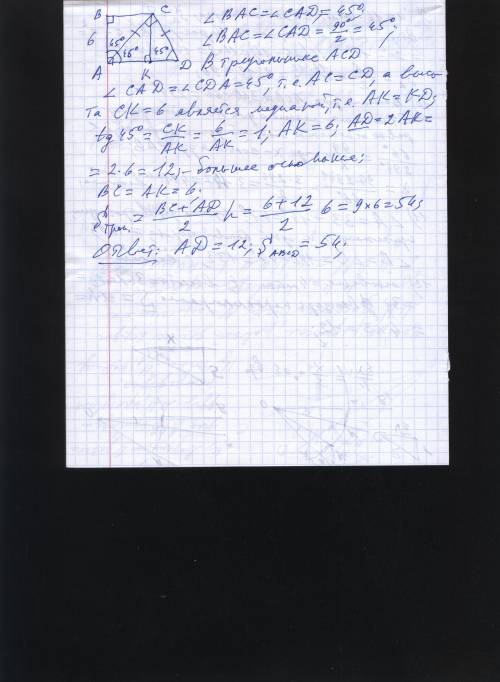 B C ∠BAC=∠CAD=45°
∠BAC=∠CAD=90°/2=45°;
6 45° 45° 45°
A K D В треугольнике ACD
∠CAD=∠CDA=45°, т.е. AC=CD, а высо
та CK=6 является медианой, т.е. AK=KD;
tg 45°=CK/AK=6/AK=1; AK=6; AD=2AK=
=2·6=12; – большее основание;
BC=AK=6.
S трап.=BC+AD/2 h=6+12/2 6=9×6=54;
Ответ: AD=12; S ABCD=54;